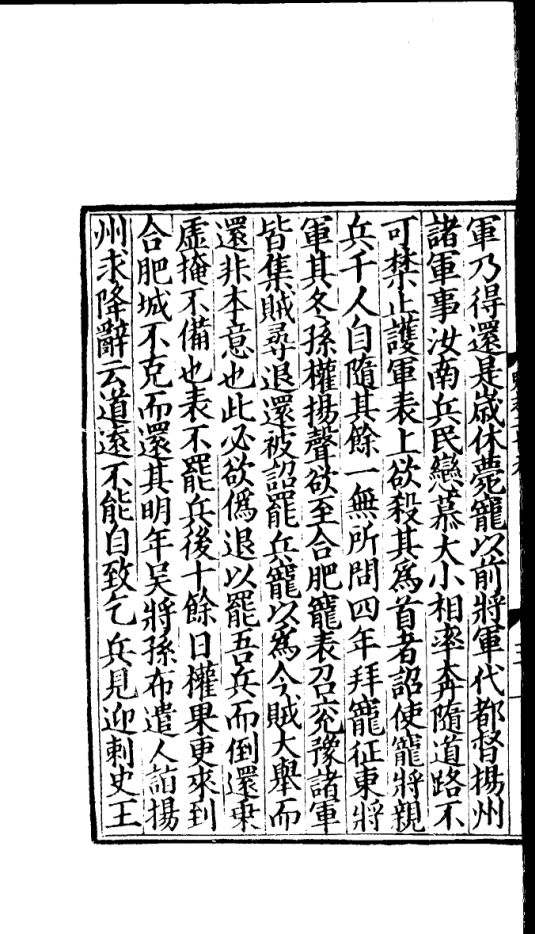 軍乃得還是歲休薨寵以前將軍代都督揚州
諸軍事汝南兵民戀慕大小相率奔隨道路不
可禁止護軍表上欲殺其爲首者詔使寵將親
兵千人自隨其餘一無所問四年拜寵征東將
軍其冬孫權揚聲欲至合肥寵表召兖豫諸軍
皆集賊尋退還被詔罷兵寵以爲今賊大舉而
還非本意也此必欲僞退以罷吾兵而倒還乗
虛掩不備也表不罷兵後十餘日權果更來到
合肥城不克而還其明年吴將孫布遣人詣揚
州求降辭云道逺不能自致乞兵見迎刺史王